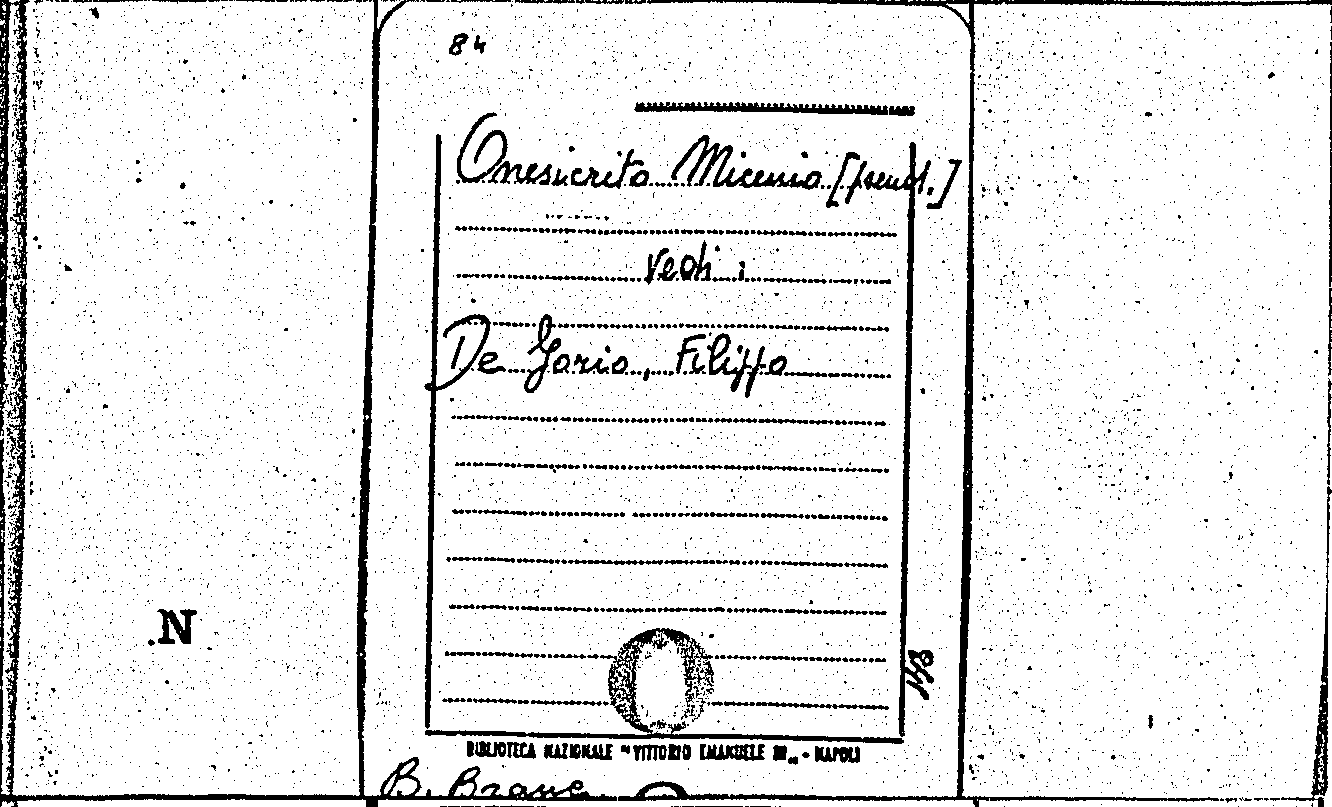 84
Onesicrito Micenio [pseud.]
vedi :
De Jorio, Filippo
N
BIBLIOTECA NAZIONALE "VITTORIO EMANUELE III„ - NAPOLI
B. Branc